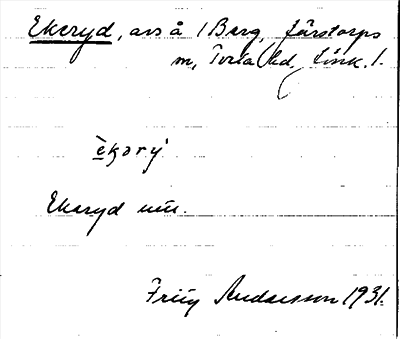 Ekeryd, avs å /Berg, Järstorps
m, Tveta hd, Jönk. /.
èkərý
Ekaryd uu.
Friiy Andersson 1931.